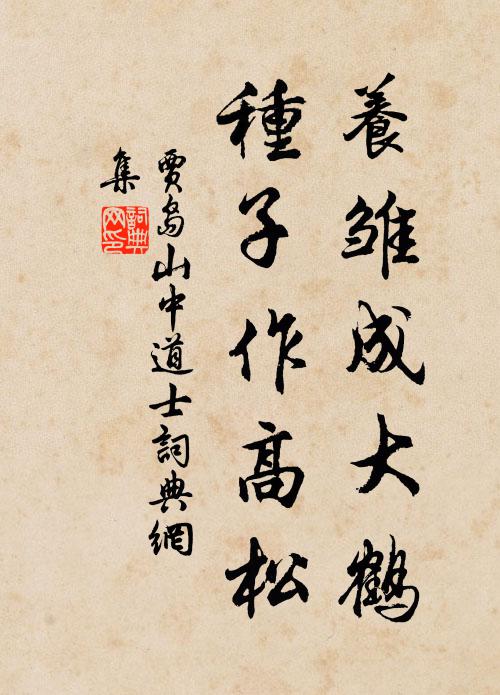 養雛成大鶴
種子作高松
賈島山中道士詞典網
集
詞典
网印